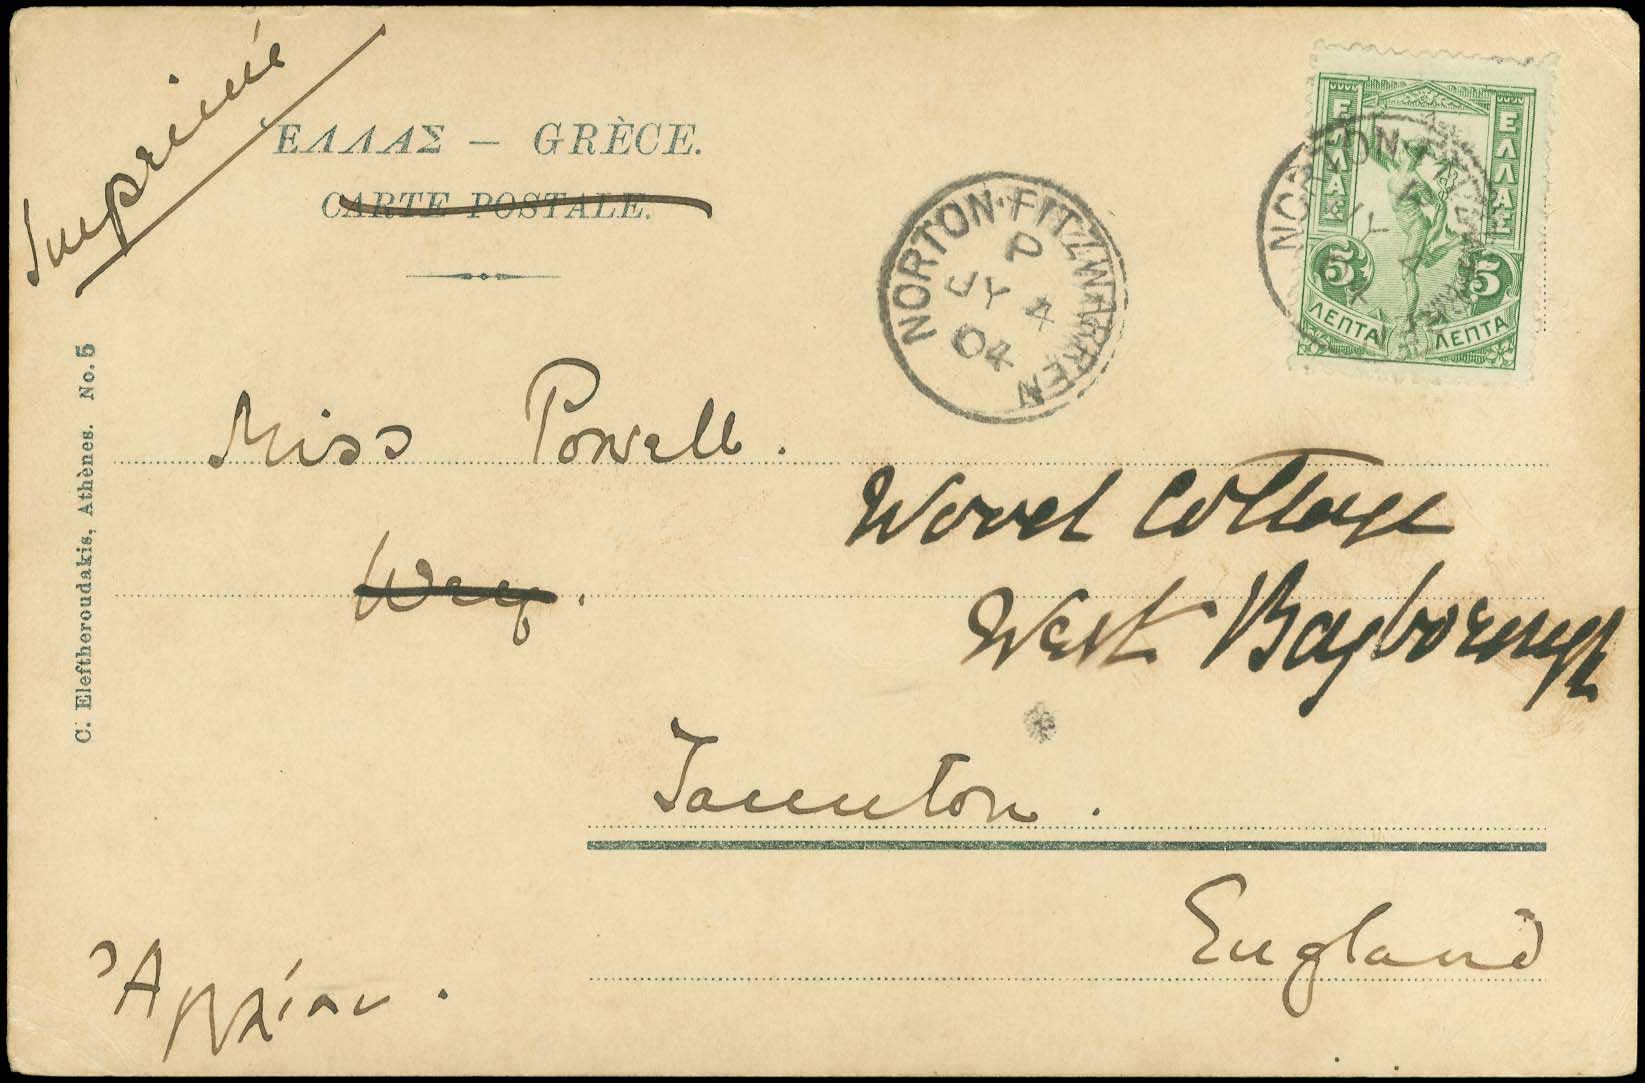 Imprimé
ΕΛΛΑΣ — GRÈCE.
CARTE POSTALE.
ΕΛΛΑΣ ΕΛΛΑΣ
5 5
ΛΕΠΤΑ ΛΕΠΤΑ
NORTON·FITZWARREN
P
JY 4
04
NORTON·FITZWARREN
JY
C. Eleftheroudakis, Athènes. No. 5
Miss Powell.
Cottage
West Bagborough
Taunton.
England
Ἀγγλίαν.